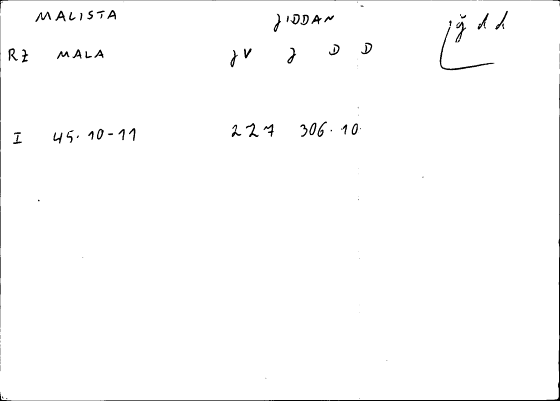 MALISTA JIDDAN jğdd
RZ MALA JV J D D
I 45.10-11 227 306.10